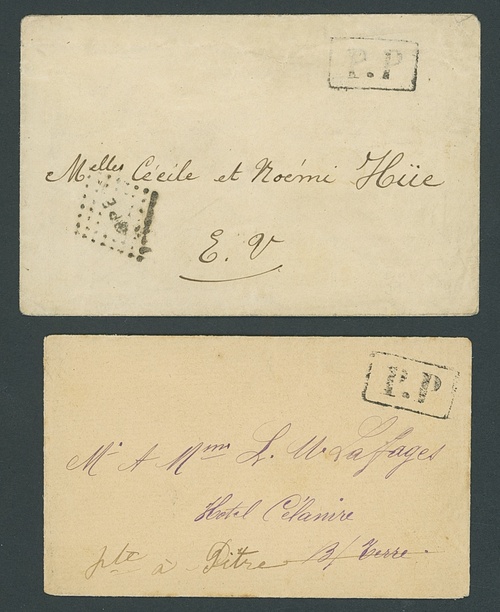 P.P
Melles Cécile et Noémi Hüe
GPE
E. V
P.P
Mr & Mme L. M. Lafages
Hotel Célanire
pte à Pitre B/ Terre